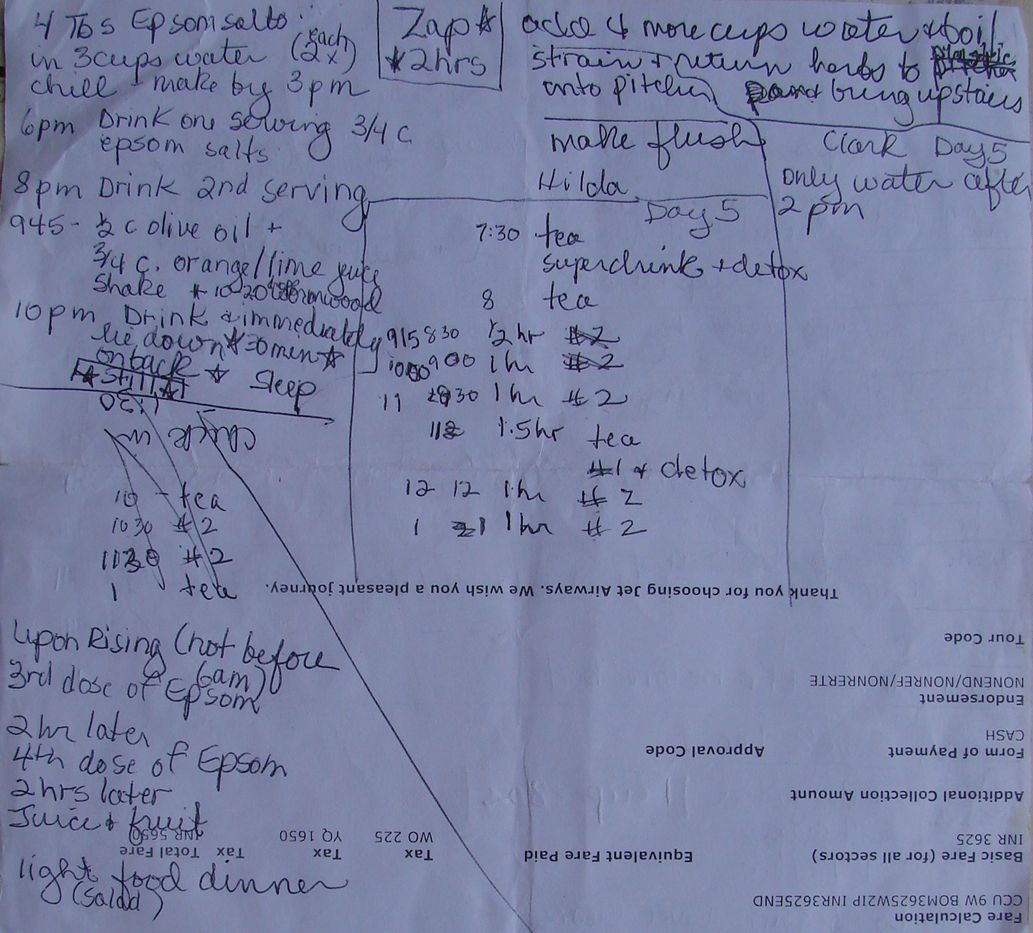 4 Tbs Epsom salts
in 3 cups water (each 2x)
chill - make by 3 pm
6pm Drink one serving 3/4 c
epsom salts
8pm Drink 2nd serving
945 - ½ c olive oil +
3/4 c. orange/lime juice
Shake + 10-20 wormwood
10pm Drink & immediately
lie down ☆ 30 min ☆
on back
☆ still ☆ ☆ Sleep
Zap ☆
☆ 2hrs
add 4 more cups water & boil
strain + return herbs to
onto pitcher and bring upstairs
make flush
Hilda
Clark Day 5
only water after
2 pm
Day 5
7:30 tea
superdrink + detox
8 tea
915 830 ½ hr #2
1000 900 1 hr #2
11 30 1 hr #2
11 1.5hr tea
#1 + detox
12 12 1 hr # 2
1 1 1 hr # 2
1:30
check in
10 - tea
1030 #2
1130 #2
1 tea
Upon Rising (not before
6am)
3rd dose of Epsom
2 hr later
4th dose of Epsom
2 hrs later
Juice & fruit
light food dinner
(salad)
Thank you for choosing Jet Airways. We wish you a pleasant journey.
Tour Code
NONEND/NONREF/NONRERTE
Endorsement
CASH
Form of Payment Approval Code
Additional Collection Amount
INR 3625 WO 225 YQ 1650 INR 5650
Basic Fare (for all sectors) Equivalent Fare Paid Tax Tax Tax Total Fare
CCU 9W BOM3625W2IP INR3625END
Fare Calculation